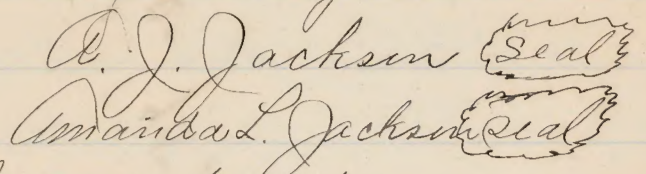 A. J. Jackson Seal
Amanda L. Jackson seal